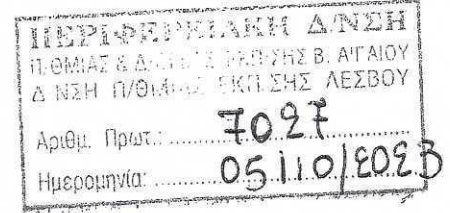 ΠΕΡΙΦΕΡΕΙΑΚΗ Δ/ΝΣΗ
Π/ΘΜΙΑΣ & ΕΚΠ/ΣΗΣ Β. ΑΙΓΑΙΟΥ
Δ/ΝΣΗ Π/ΘΜΙΑΣ ΕΚΠ/ΣΗΣ ΛΕΣΒΟΥ
Αριθμ. Πρωτ.: 7027
Ημερομηνία: 05/10/2023